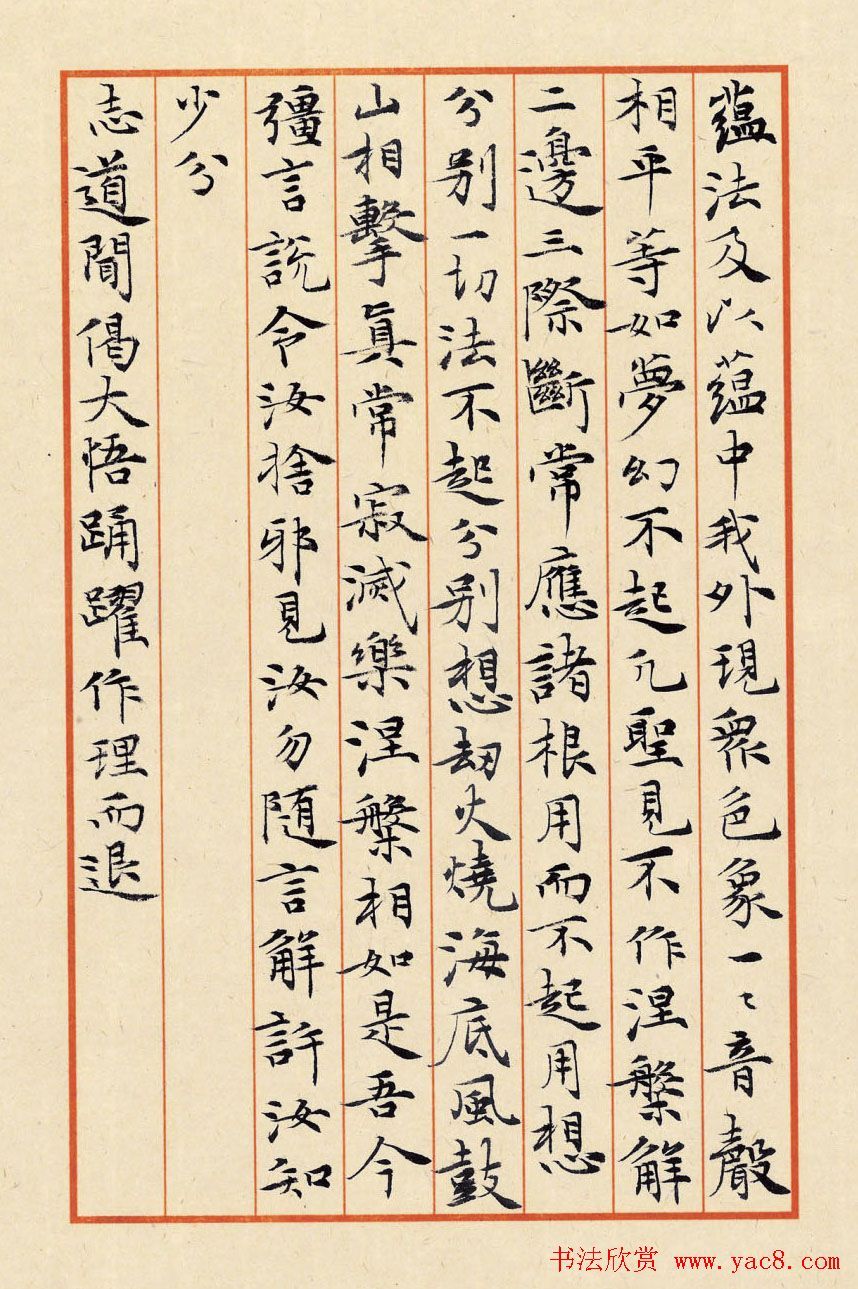 蘊法及以蘊中我外現衆色象一〻音聲
相平等如夢幻不起凡聖見不作涅槃解
二邊三際斷常應諸根用而不起用想
分别一切法不起分别想劫火燒海底風鼓
山相擊真常寂滅樂涅槃相如是吾今
彊言説令汝捨邪見汝勿随言解許汝知
少分
志道聞偈大悟踊躍作理而退
书法欣赏 www.yac8.com